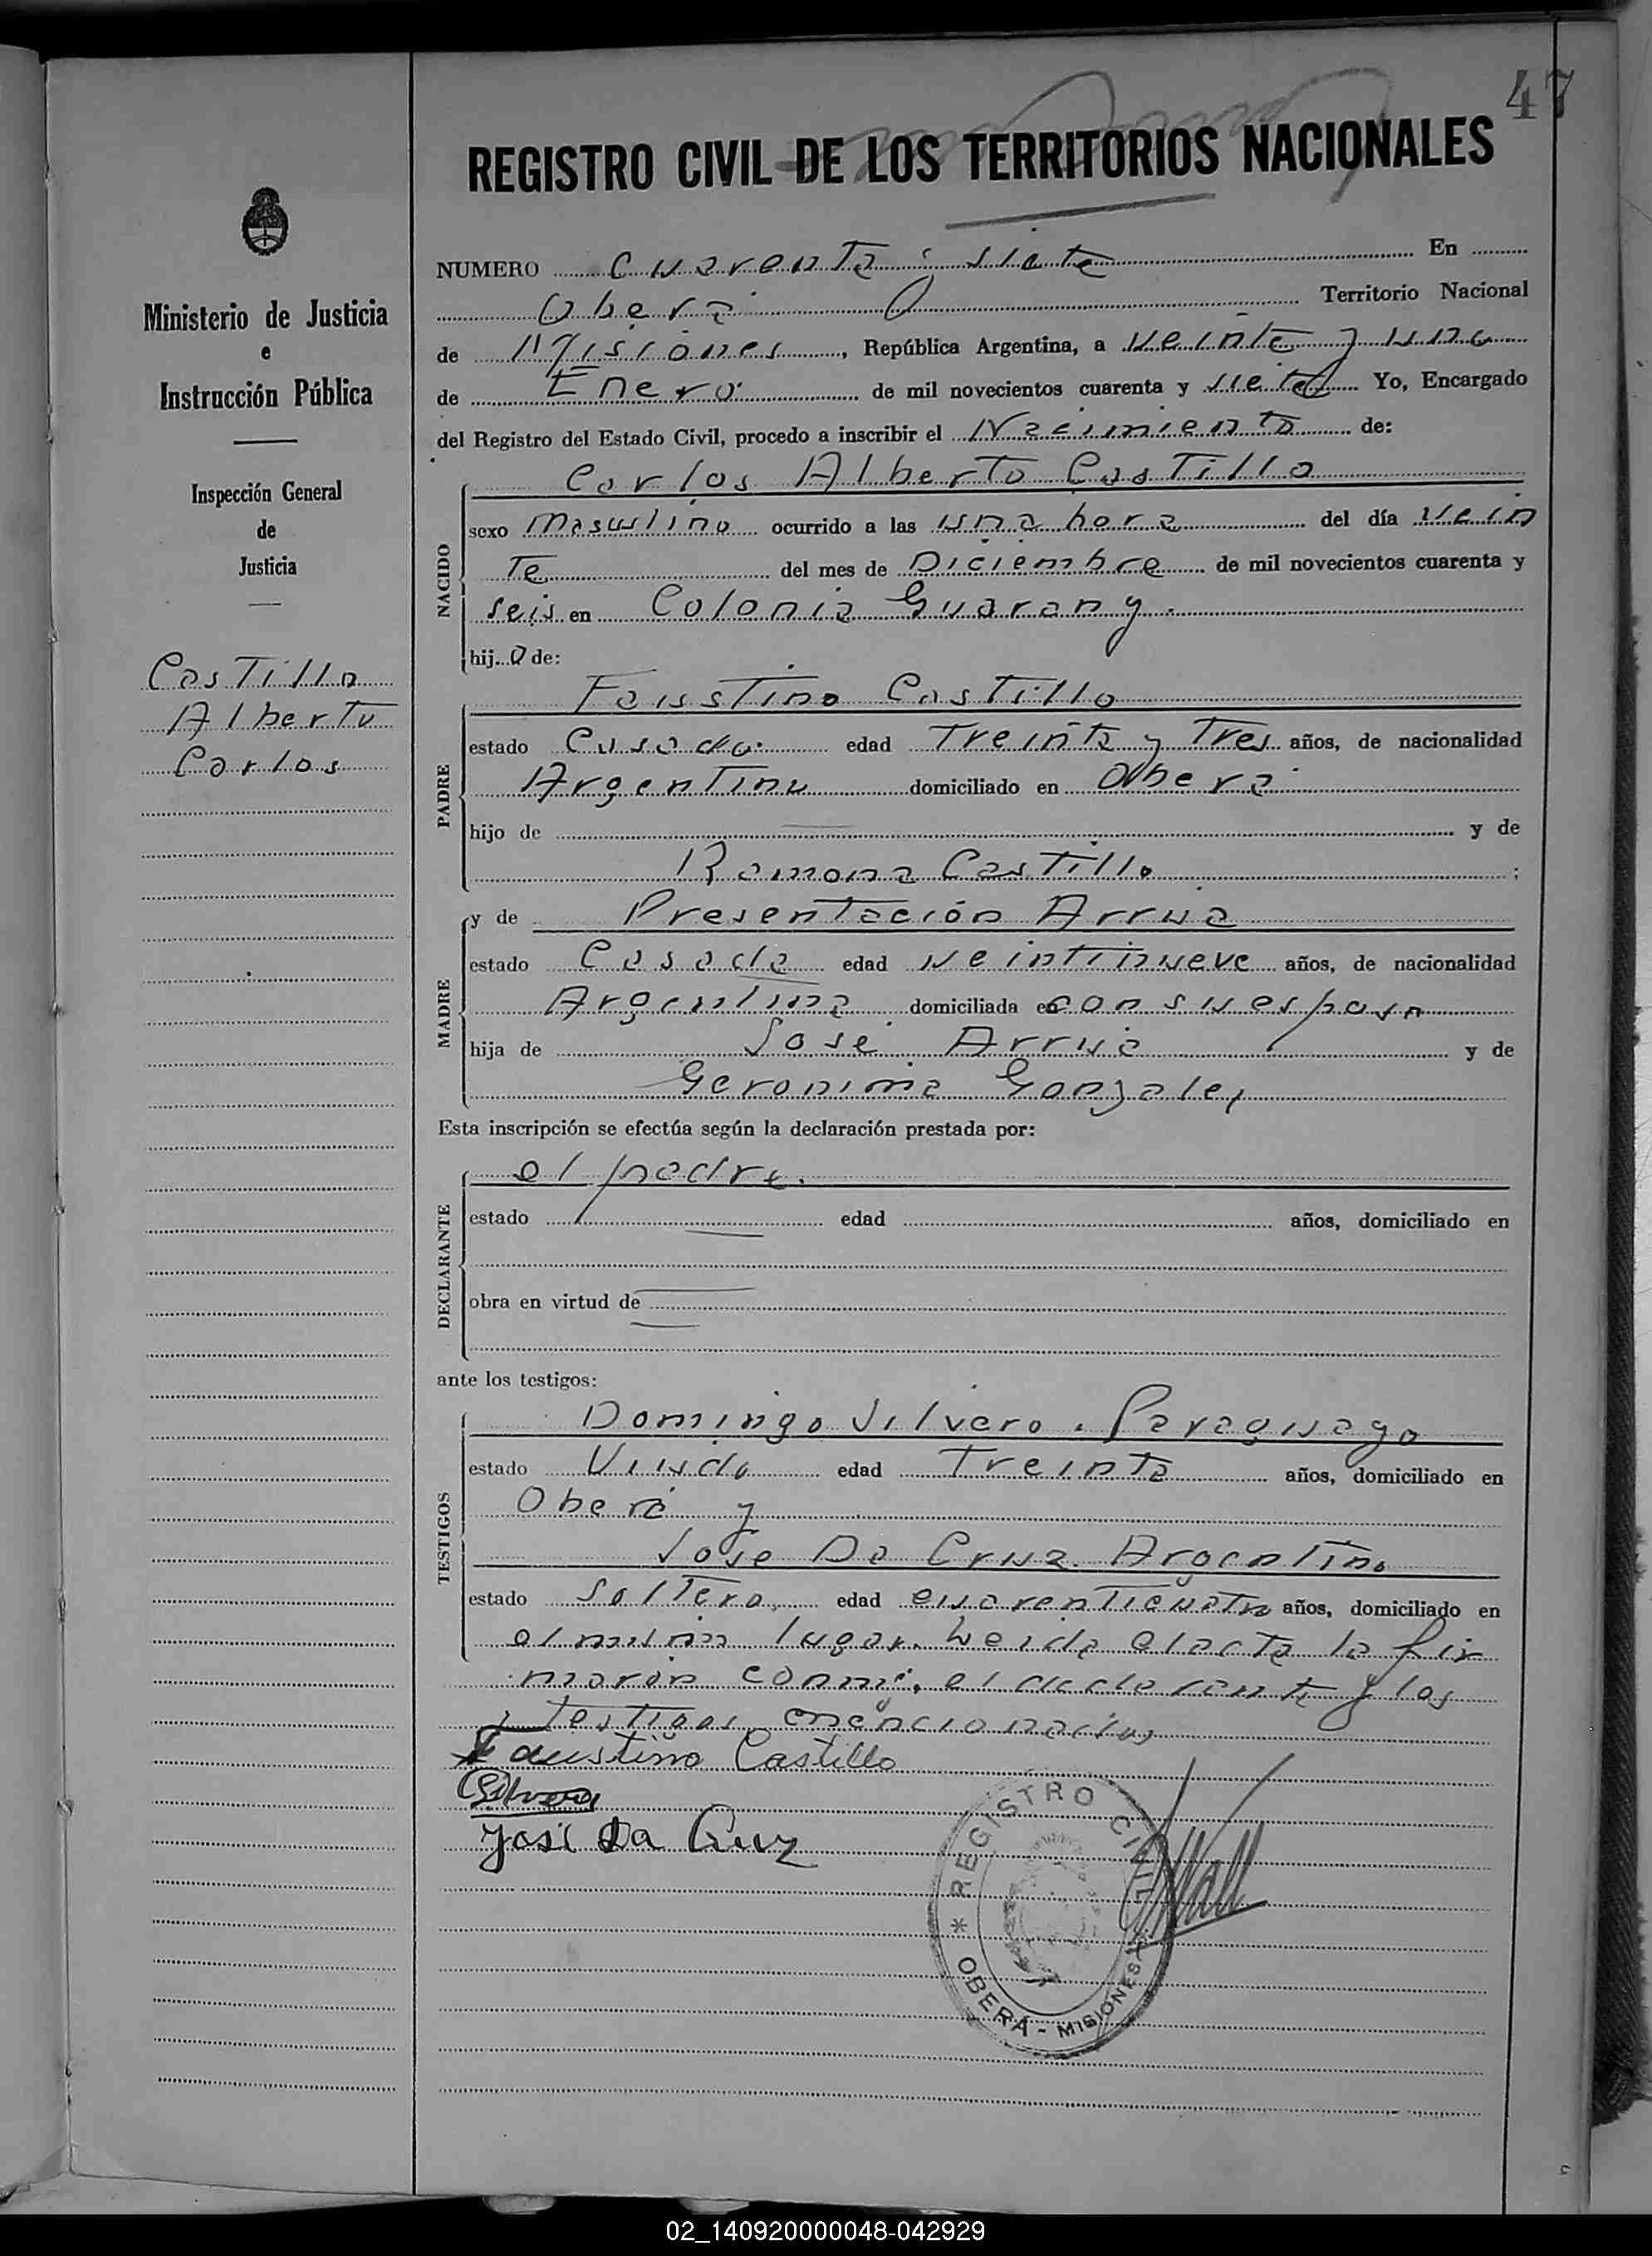 47
REGISTRO CIVIL DE LOS TERRITORIOS NACIONALES
NUMERO cuarenta y siete En
Oberá Territorio Nacional
de Misiones, República Argentina, a veinte y uno
de Enero de mil novecientos cuarenta y siete Yo, Encargado
del Registro del Estado Civil, procedo a inscribir el Nacimiento de:
Carlos Alberto Castillo
NACIDO
sexo Masculino ocurrido a las una hora del día vein
te del mes de Diciembre de mil novecientos cuarenta y
seis en Colonia Guarany.
hijo de:
Faustino Castillo
PADRE
estado Casado edad treinta y tres años, de nacionalidad
Argentino domiciliado en Oberá
hijo de y de
Ramona Castillo ;
MADRE
y de Presentación Arrua
estado Casada edad veintinueve años, de nacionalidad
Argentina domiciliada en con su esposo
hija de José Arrua y de
Geronima Gonzalez
Esta inscripción se efectúa según la declaración prestada por:
el padre.
DECLARANTE
estado edad años, domiciliado en
obra en virtud de
ante los testigos:
TESTIGOS
Domingo Silvero. Paraguayo
estado Viudo edad Treinta años, domiciliado en
Oberá y
Jose Da Cruz. Argentino
estado Soltero, edad cuarenticuatro años, domiciliado en
el mismo lugar. Leida el acta la fir
maron conmigo, el declarante y los
testigos mencionados
Faustino Castillo
Silvero
José Da Cruz
REGISTRO CIVIL
* OBERÁ - MISIONES *
Ministerio de Justicia
e
Instrucción Pública
Inspección General
de
Justicia
Castillo
Alberto
Carlos
02_140920000048-042929